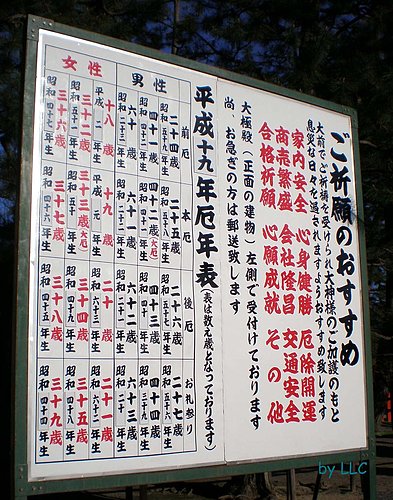 ご祈願のおすすめ
大前でご祈禱を受けられ大神様のご加護のもと
息災な日々を過されますようおすすめ致します
家内安全 心身健勝 厄除開運
商売繁盛 会社隆昌 交通安全
合格祈願 心願成就 その他
大極殿（正面の建物）左側で受付けております
尚、お急ぎの方は郵送致します
平成十九年厄年表（表は数え歳となっております）
前厄 本厄 後厄 お礼参り
男性
二十四歳 二十五歳 二十六歳 二十七歳
昭和五十九年生 昭和五十八年生 昭和五十七年生 昭和五十六年生
四十一歳 四十二歳(大厄) 四十三歳 四十四歳
昭和四十二年生 昭和四十一年生 昭和四十年生 昭和三十九年生
六十歳 六十一歳 六十二歳 六十三歳
昭和二十三年生 昭和二十二年生 昭和二十一年生 昭和二十年生
女性
十八歳 十九歳 二十歳 二十一歳
平成二年生 平成元年生 昭和六十三年生 昭和六十二年生
三十二歳 三十三歳(大厄) 三十四歳 三十五歳
昭和五十一年生 昭和五十年生 昭和四十九年生 昭和四十八年生
三十六歳 三十七歳 三十八歳 三十九歳
昭和四十七年生 昭和四十六年生 昭和四十五年生 昭和四十四年生
by LLC